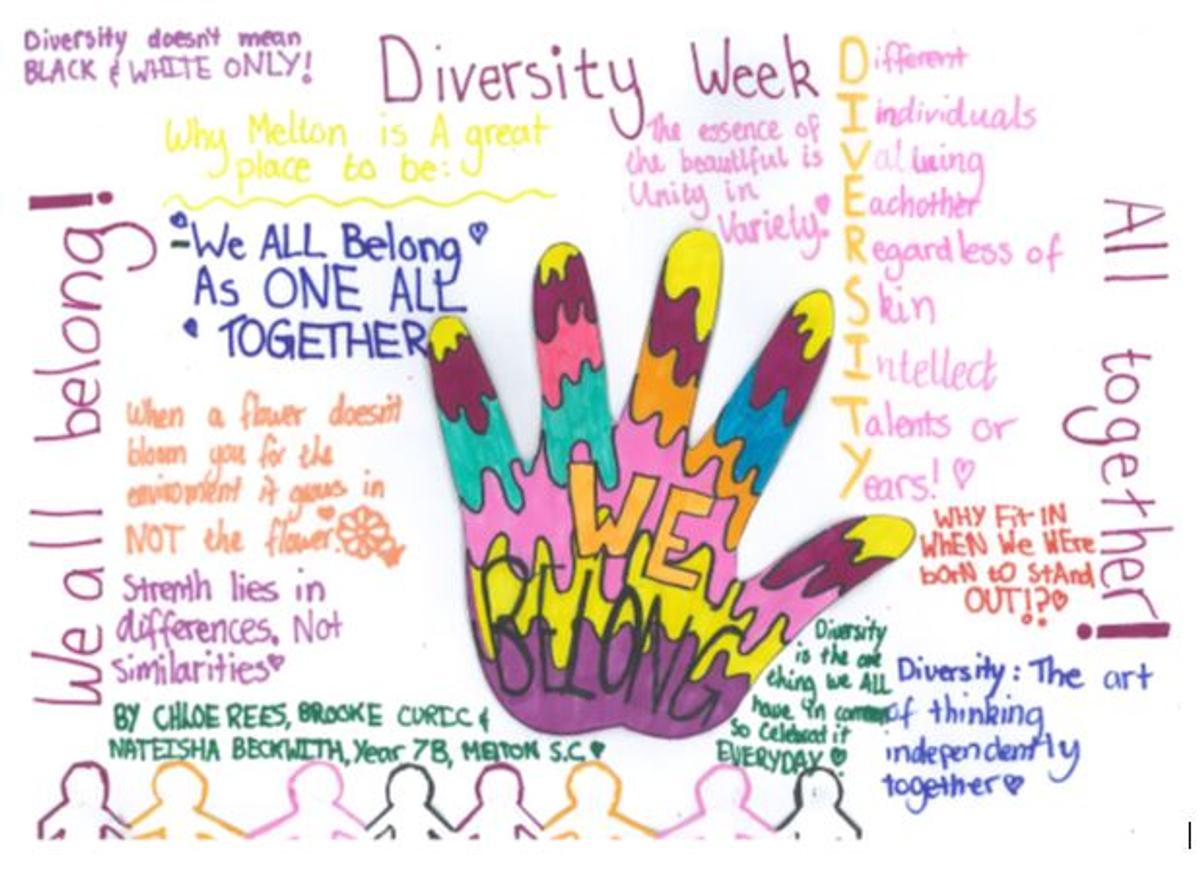 Diversity doesn't mean
BLACK & WHITE ONLY!
Diversity Week
Why Melton is A great
place to be:
-We ALL Belong
As ONE ALL
TOGETHER
The essence of
the beautiful is
Unity in
Variety.
Different
Individuals
Valuing
Eachother
Regardless of
Skin
Intellect
Talents or
Years!
We all belong!
All together!
When a flower doesn't
bloom you for the
enviroment it grows in
NOT the flower.
Strenth lies in
differences. Not
similarities
WE
BELONG
WHY Fit IN
WHEN WE WERE
born to StAnd
OUT!?
Diversity
is the one
thing we ALL
have in common
So Celebrat it
EVERYDAY
Diversity: The art
of thinking
independently
together
BY CHLOE REES, BROOKE CURIC &
NATEISHA BECKWITH, Year 7B, MELTON S.C